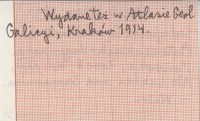 Wydane też w Atlasie Geol.
Galicyi, Kraków 1914.